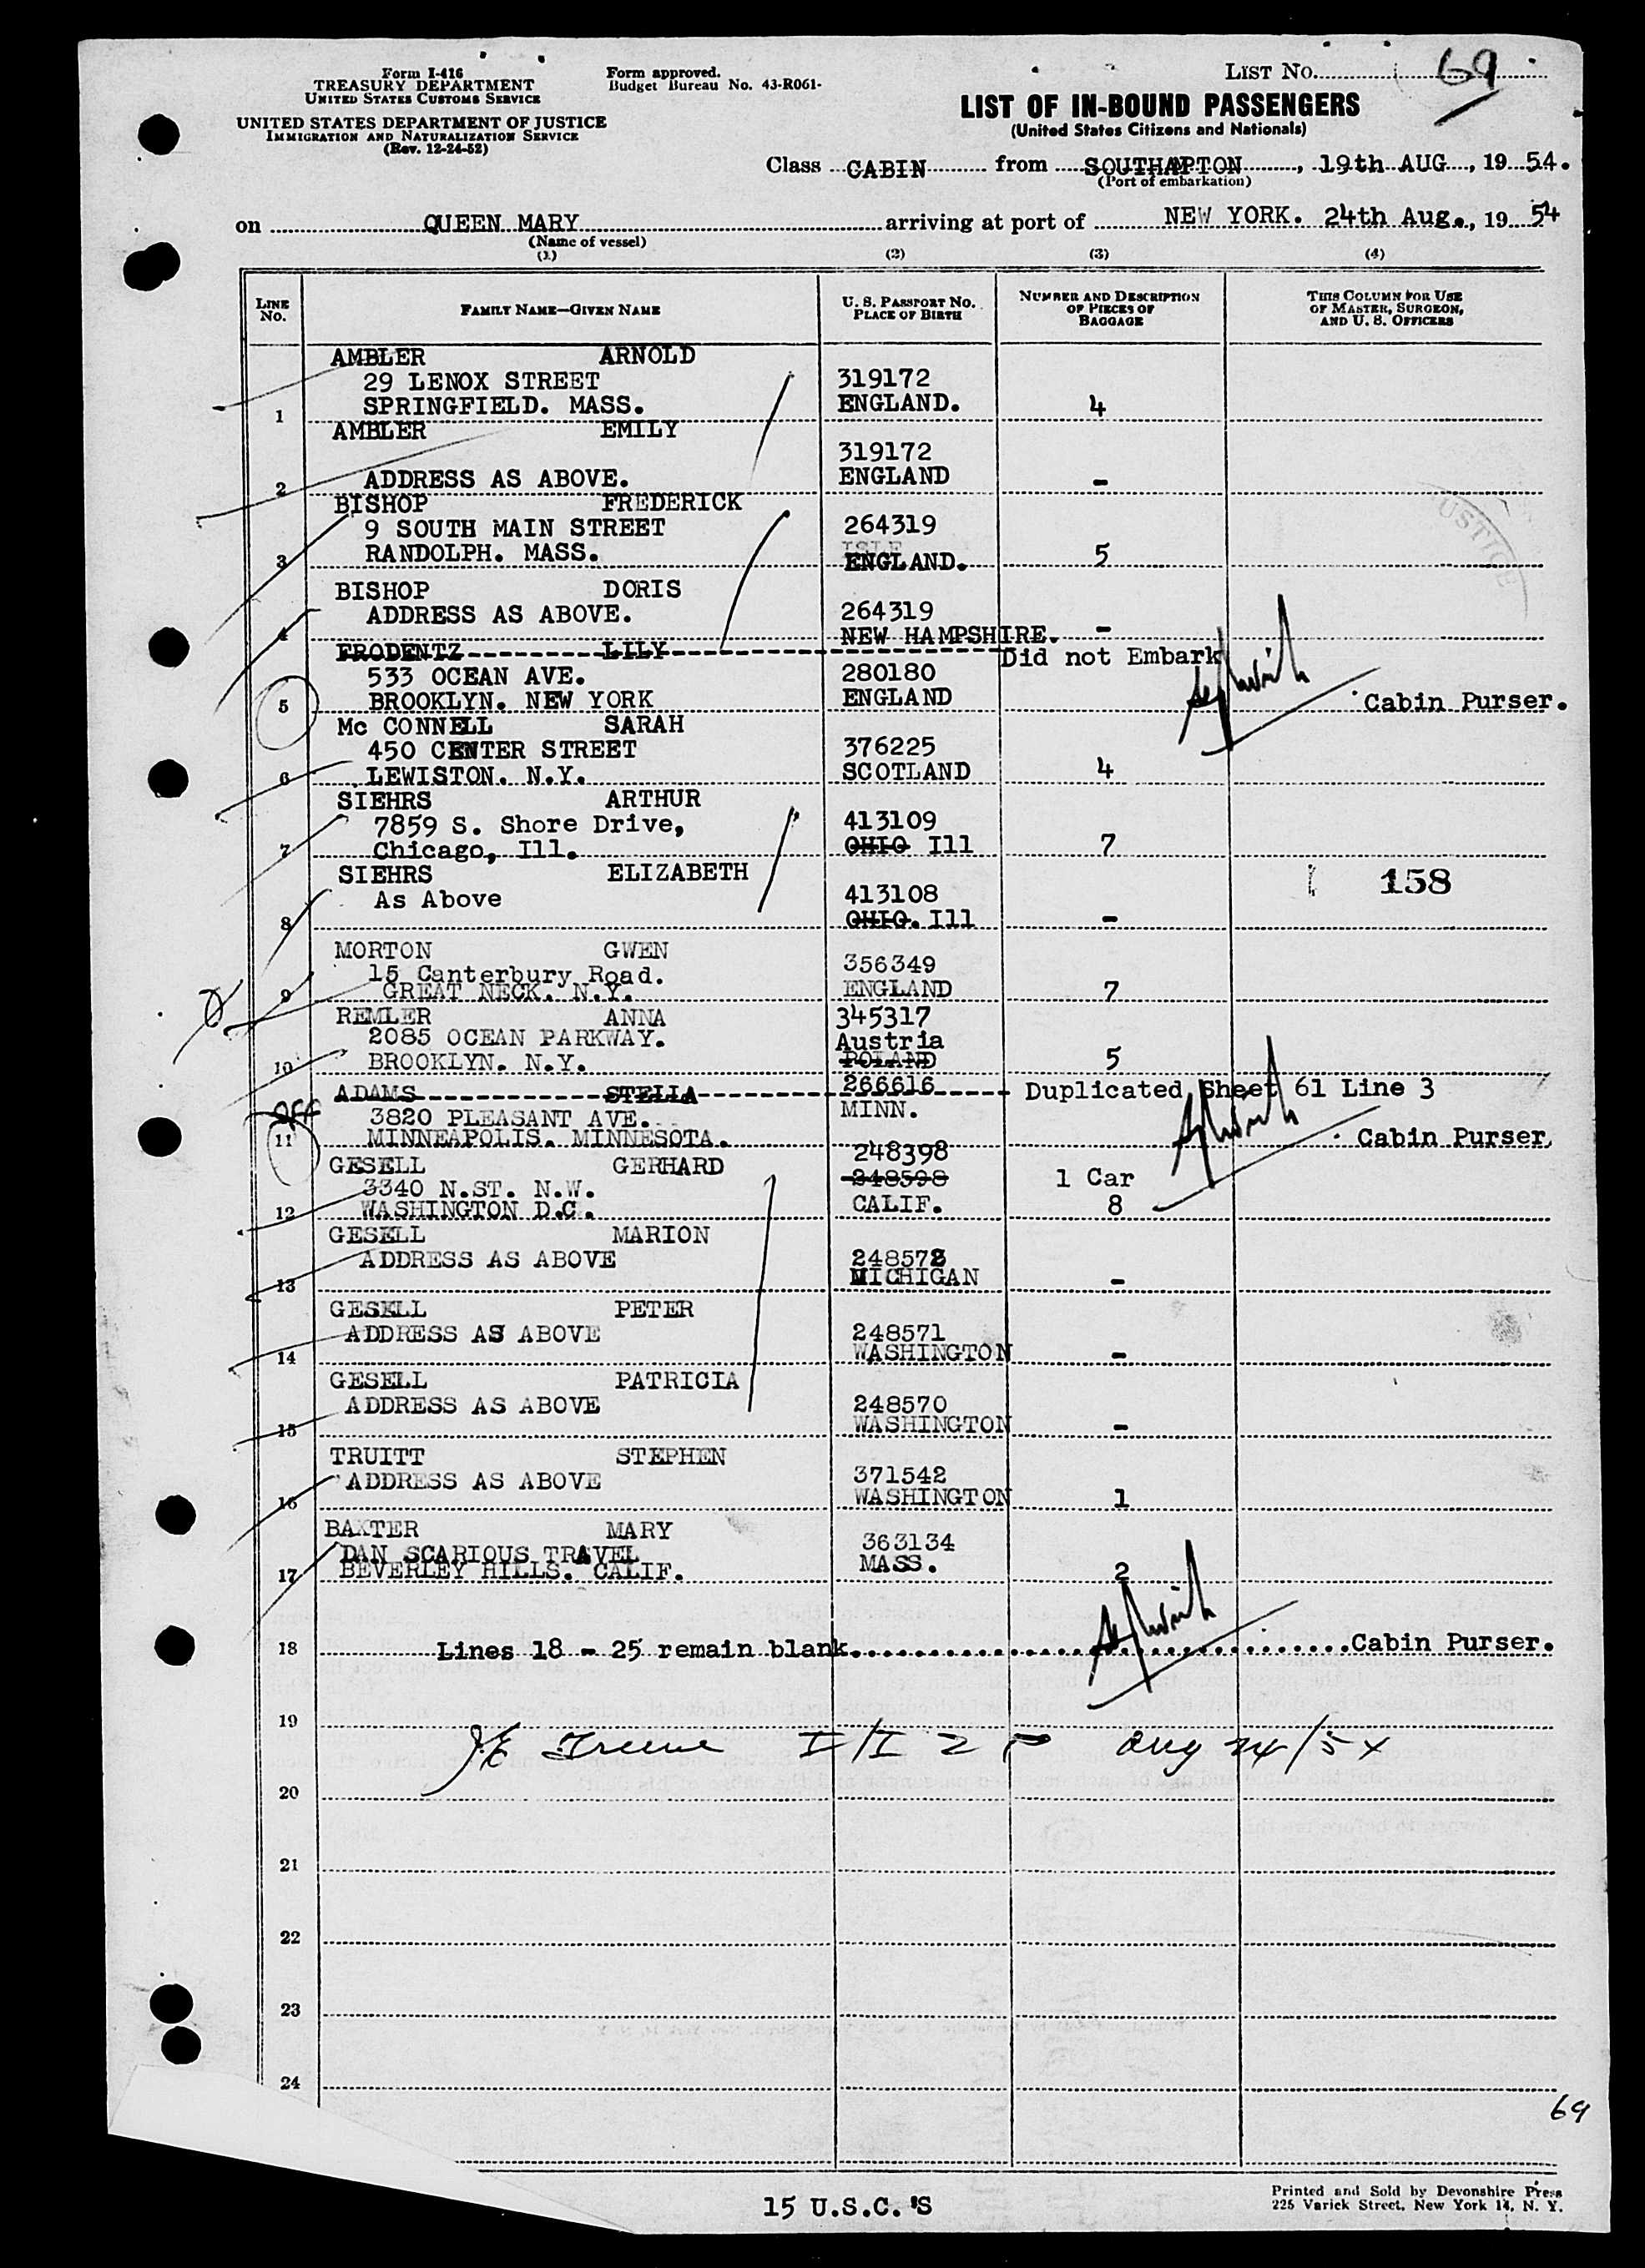 Form I-416
TREASURY DEPARTMENT
UNITED STATES CUSTOMS SERVICE
UNITED STATES DEPARTMENT OF JUSTICE
IMMIGRATION AND NATURALIZATION SERVICE
(Rev. 12-24-52)
Form approved.
Budget Bureau No. 43-R061-
LIST No. 69
LIST OF IN-BOUND PASSENGERS
(United States Citizens and Nationals)
Class CABIN from SOUTHAPTON, 19th AUG, 19 54.
(Port of embarkation)
on QUEEN MARY arriving at port of NEW YORK. 24th Aug., 19 54
(Name of vessel)
(1) (2) (3) (4)
LINE No. FAMILY NAME—GIVEN NAME U. S. PASSPORT No. PLACE OF BIRTH NUMBER AND DESCRIPTION OF PIECES OF BAGGAGE THIS COLUMN FOR USE OF MASTER, SURGEON, AND U. S. OFFICERS
AMBLER ARNOLD
29 LENOX STREET 319172
1 SPRINGFIELD. MASS. ENGLAND. 4
AMBLER EMILY
319172
2 ADDRESS AS ABOVE. ENGLAND -
BISHOP FREDERICK
9 SOUTH MAIN STREET 264319
ISLE
3 RANDOLPH. MASS. ENGLAND. 5
USTICE
BISHOP DORIS
ADDRESS AS ABOVE. 264319
4 NEW HAMPSHIRE. -
FRODENTZ LILY Did not Embark
533 OCEAN AVE. 280180
5 BROOKLYN. NEW YORK ENGLAND Cabin Purser.
Mc CONNELL SARAH
450 CENTER STREET 376225
6 LEWISTON. N.Y. SCOTLAND 4
SIEHRS ARTHUR
7859 S. Shore Drive, 413109
7 Chicago, Ill. OHIO Ill 7
SIEHRS ELIZABETH 158
As Above 413108
8 OHIO. Ill -
MORTON GWEN
15 Canterbury Road. 356349
9 GREAT NECK. N.Y. ENGLAND 7
REMLER ANNA 345317
2085 OCEAN PARKWAY. Austria
10 BROOKLYN. N.Y. POLAND 5
ADAMS STELLA 266616 Duplicated Sheet 61 Line 3
off 3820 PLEASANT AVE. MINN.
11 MINNEAPOLIS. MINNESOTA. Cabin Purser.
248398
GESELL GERHARD 248598 1 Car
3340 N.ST. N.W.
12 WASHINGTON D.C. CALIF. 8
GESELL MARION
ADDRESS AS ABOVE 248572
13 MICHIGAN -
GESELL PETER
ADDRESS AS ABOVE 248571
14 WASHINGTON -
GESELL PATRICIA
ADDRESS AS ABOVE 248570
15 WASHINGTON -
TRUITT STEPHEN
ADDRESS AS ABOVE 371542
16 WASHINGTON 1
BAXTER MARY
DAN SCARIOUS TRAVEL 363134
17 BEVERLEY HILLS. CALIF. MASS. 2
18 Lines 18 - 25 remain blank. Cabin Purser.
19
Aug 24/54
20
21
22
23
24
69
15 U.S.C.'S
Printed and Sold by Devonshire Press
225 Varick Street, New York 14, N. Y.